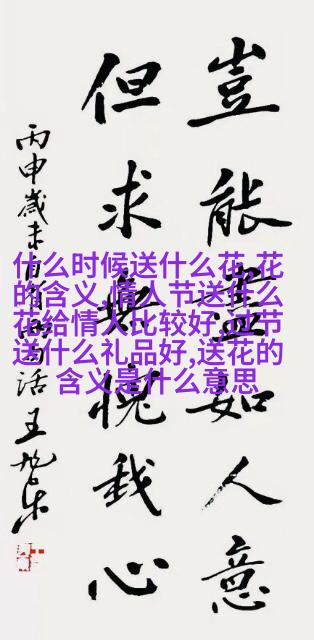 豈能盡如人意
但求無愧我心
丙申歲末
王旭东
什么时候送什么花,花
的含义,情人节送什么
花给情人比较好,过节
送什么礼品好,送花的
含义是什么意思